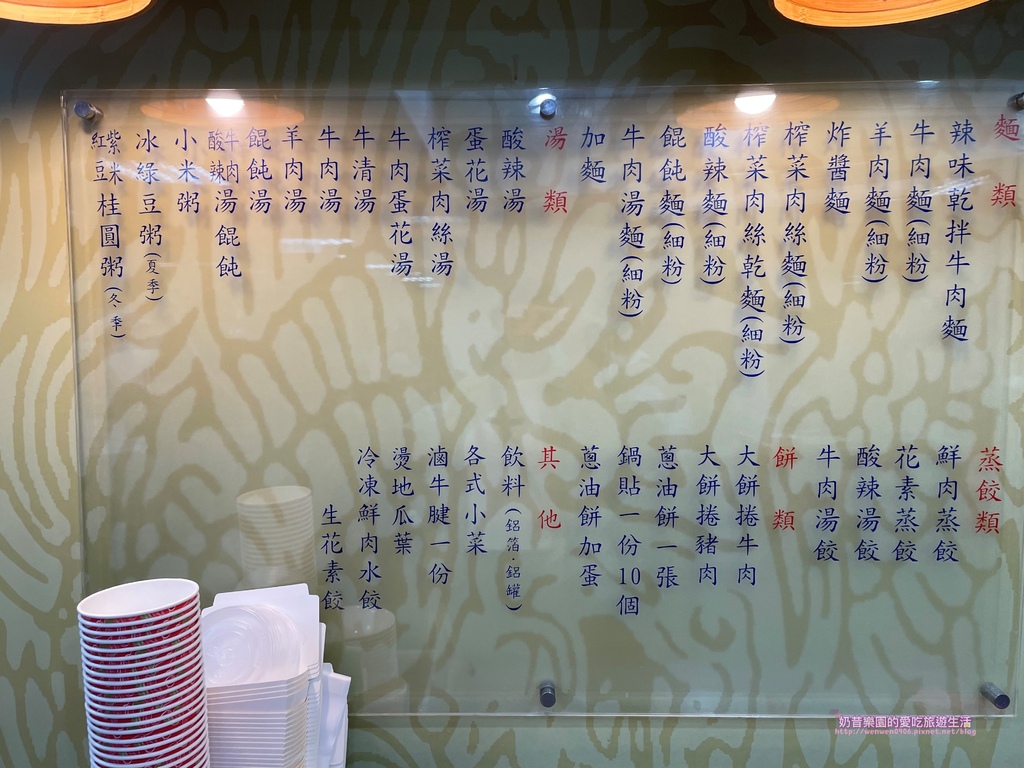 麵類
辣味乾拌牛肉麵
牛肉麵(細粉)
羊肉麵(細粉)
炸醬麵
榨菜肉絲麵(細粉)
榨菜肉絲乾麵(細粉)
酸辣麵(細粉)
餛飩麵(細粉)
牛肉湯麵(細粉)
加麵
湯類
酸辣湯
蛋花湯
榨菜肉絲湯
牛肉蛋花湯
牛清湯
牛肉湯
羊肉湯
餛飩湯
牛肉酸辣湯餛飩
小米粥
冰綠豆粥(夏季)
紫米紅豆桂圓粥(冬季)
蒸餃類
鮮肉蒸餃
花素蒸餃
酸辣湯餃
牛肉湯餃
餅類
大餅捲牛肉
大餅捲豬肉
蔥油餅一張
鍋貼一份10個
蔥油餅加蛋
其他
飲料(鋁箔鋁罐)
各式小菜
滷牛腱一份
燙地瓜葉
冷凍鮮肉水餃
生花素餃
奶音樂園的愛吃旅遊生活
http://wenwen0406.pixnet.net/blog